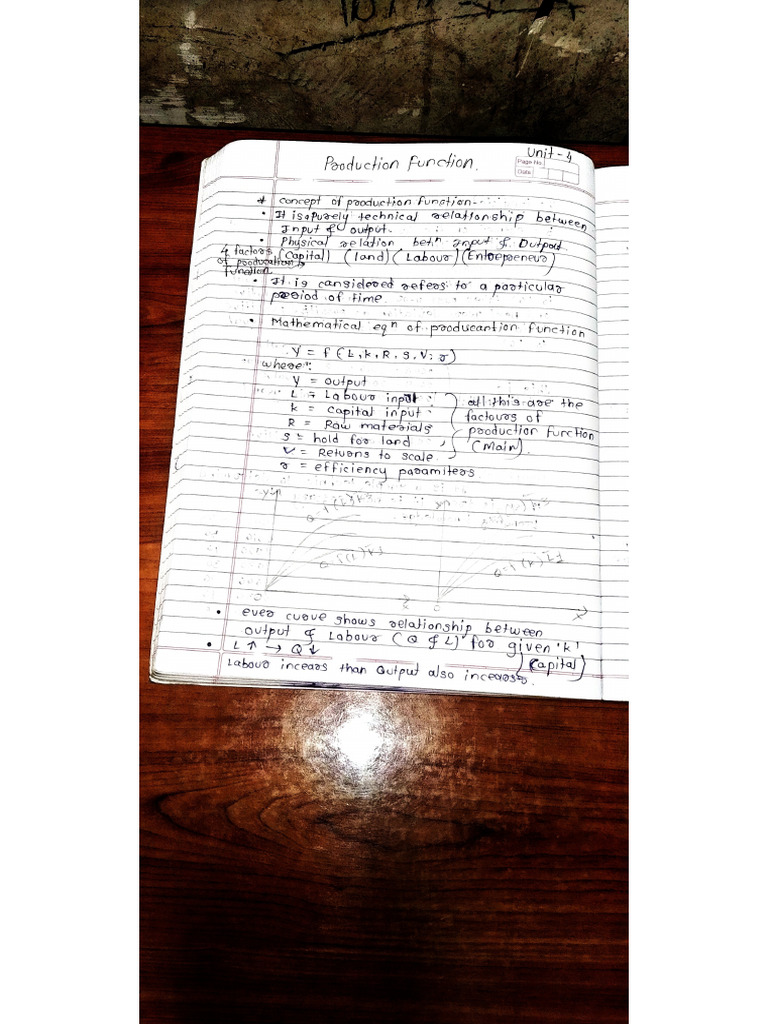 Unit-4
Page No.
Date
Production Function.
* concept of production function--
• It is a purely technical relationship between
Input & output.
• Physical relation betn Input & Output
4 factors of production function (Capital) (land) (Labour) (Entrepreneur)
• It is cansidered refers to a particular
period of time
• Mathematical eqn of producantion function
Y = f (L, k, R, S, V, r)
where:
Y = output
L = Labour input
k = Capital input
R = Raw materials
S = hold for land
V = Returns to scale
r = efficiency paramiters
all this are the
factours of
production function
(main).
Q = f (k)
O
x
• ever curve shows relationship between
output & Labour (Q & L) for given 'k'
(Capital)
• L ↑ → Q ↓
Labour incears than Output also incears.